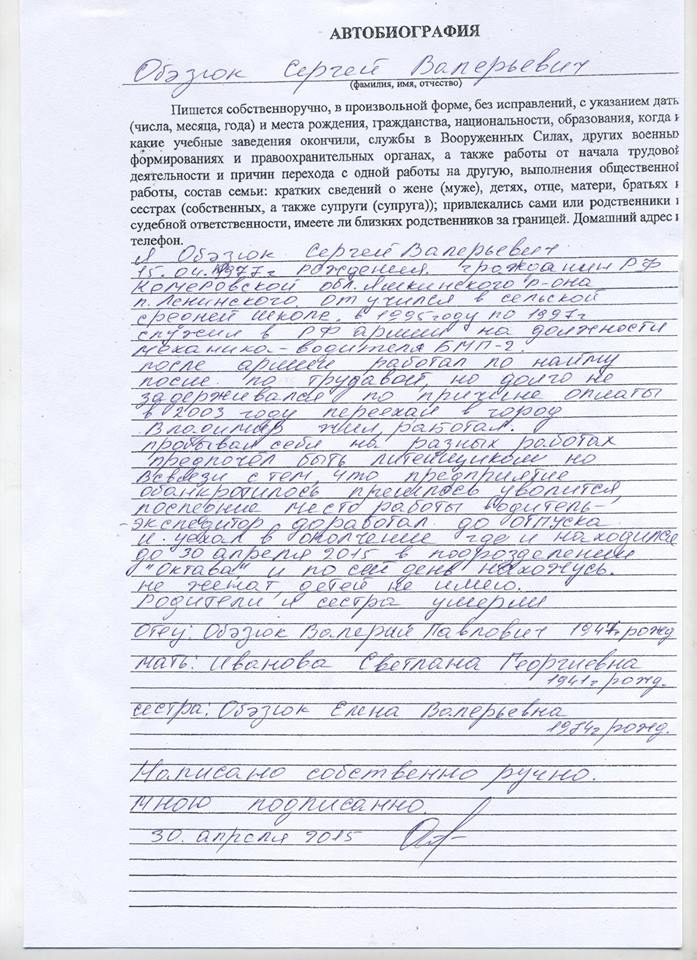 АВТОБИОГРАФИЯ
Обэзюк Сергей Валерьевич
(фамилия, имя, отчество)
Пишется собственноручно, в произвольной форме, без исправлений, с указанием даты
(числа, месяца, года) и места рождения, гражданства, национальности, образования, когда и
какие учебные заведения окончили, службы в Вооруженных Силах, других военных
формированиях и правоохранительных органах, а также работы от начала трудовой
деятельности и причин перехода с одной работы на другую, выполнения общественной
работы, состав семьи: кратких сведений о жене (муже), детях, отце, матери, братьях и
сестрах (собственных, а также супруги (супруга)); привлекались сами или родственники к
судебной ответственности, имеете ли близких родственников за границей. Домашний адрес и
телефон.
Я Обэзюк Сергей Валерьевич
рождения, гражданин РФ
Кемеровской обл. Яшкинского р-она
п. Ленинского. отучился в сельской
средней школе. в 1995 году по 1997г
служил в РФ армии на должности
механика-водителя БМП-2.
после армии работал по найму
после по трудавой, но долго не
задерживался по причине оплаты
в 2003 году переехал в город
Владимир жил, работал.
пробывал себя на разных работах
предпочёл быть литейщиком но
всвязи с тем, что предприятие
обанкротилось пришлось уволится,
последние место работы водитель-
-экспедитор доработал до отпуска
и уехал в ополчение где и находился
до 30 апреля 2015 в подрозделении
"Октава" и по сей день нахожусь.
не женат, детей не имею.
Родители и сестра умерли
Отец: Обэзюк Валерий Павлович рожд
мать: Иванова Светлана Георгиевна
1941г рожд.
сестра: Обэзюк Елена Валерьевна
1974г рожд.
Написано собственно ручно.
Мною подписанно.
30. апреля 2015